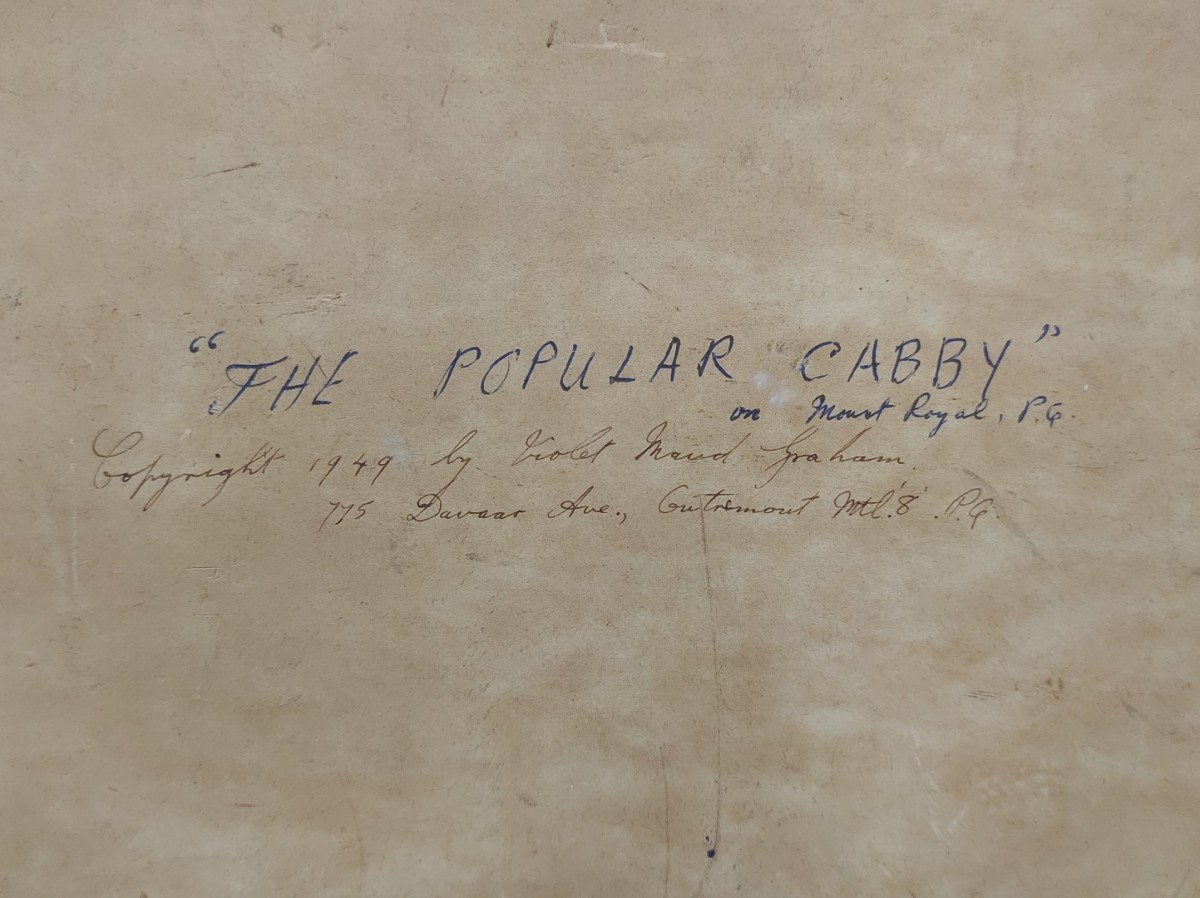 “THE POPULAR CABBY”
on Mount Royal, P.Q.
Copyright 1949 by Violet Maud Graham.
775 Davaar Ave., Outremont Mtl.'8' P.Q.